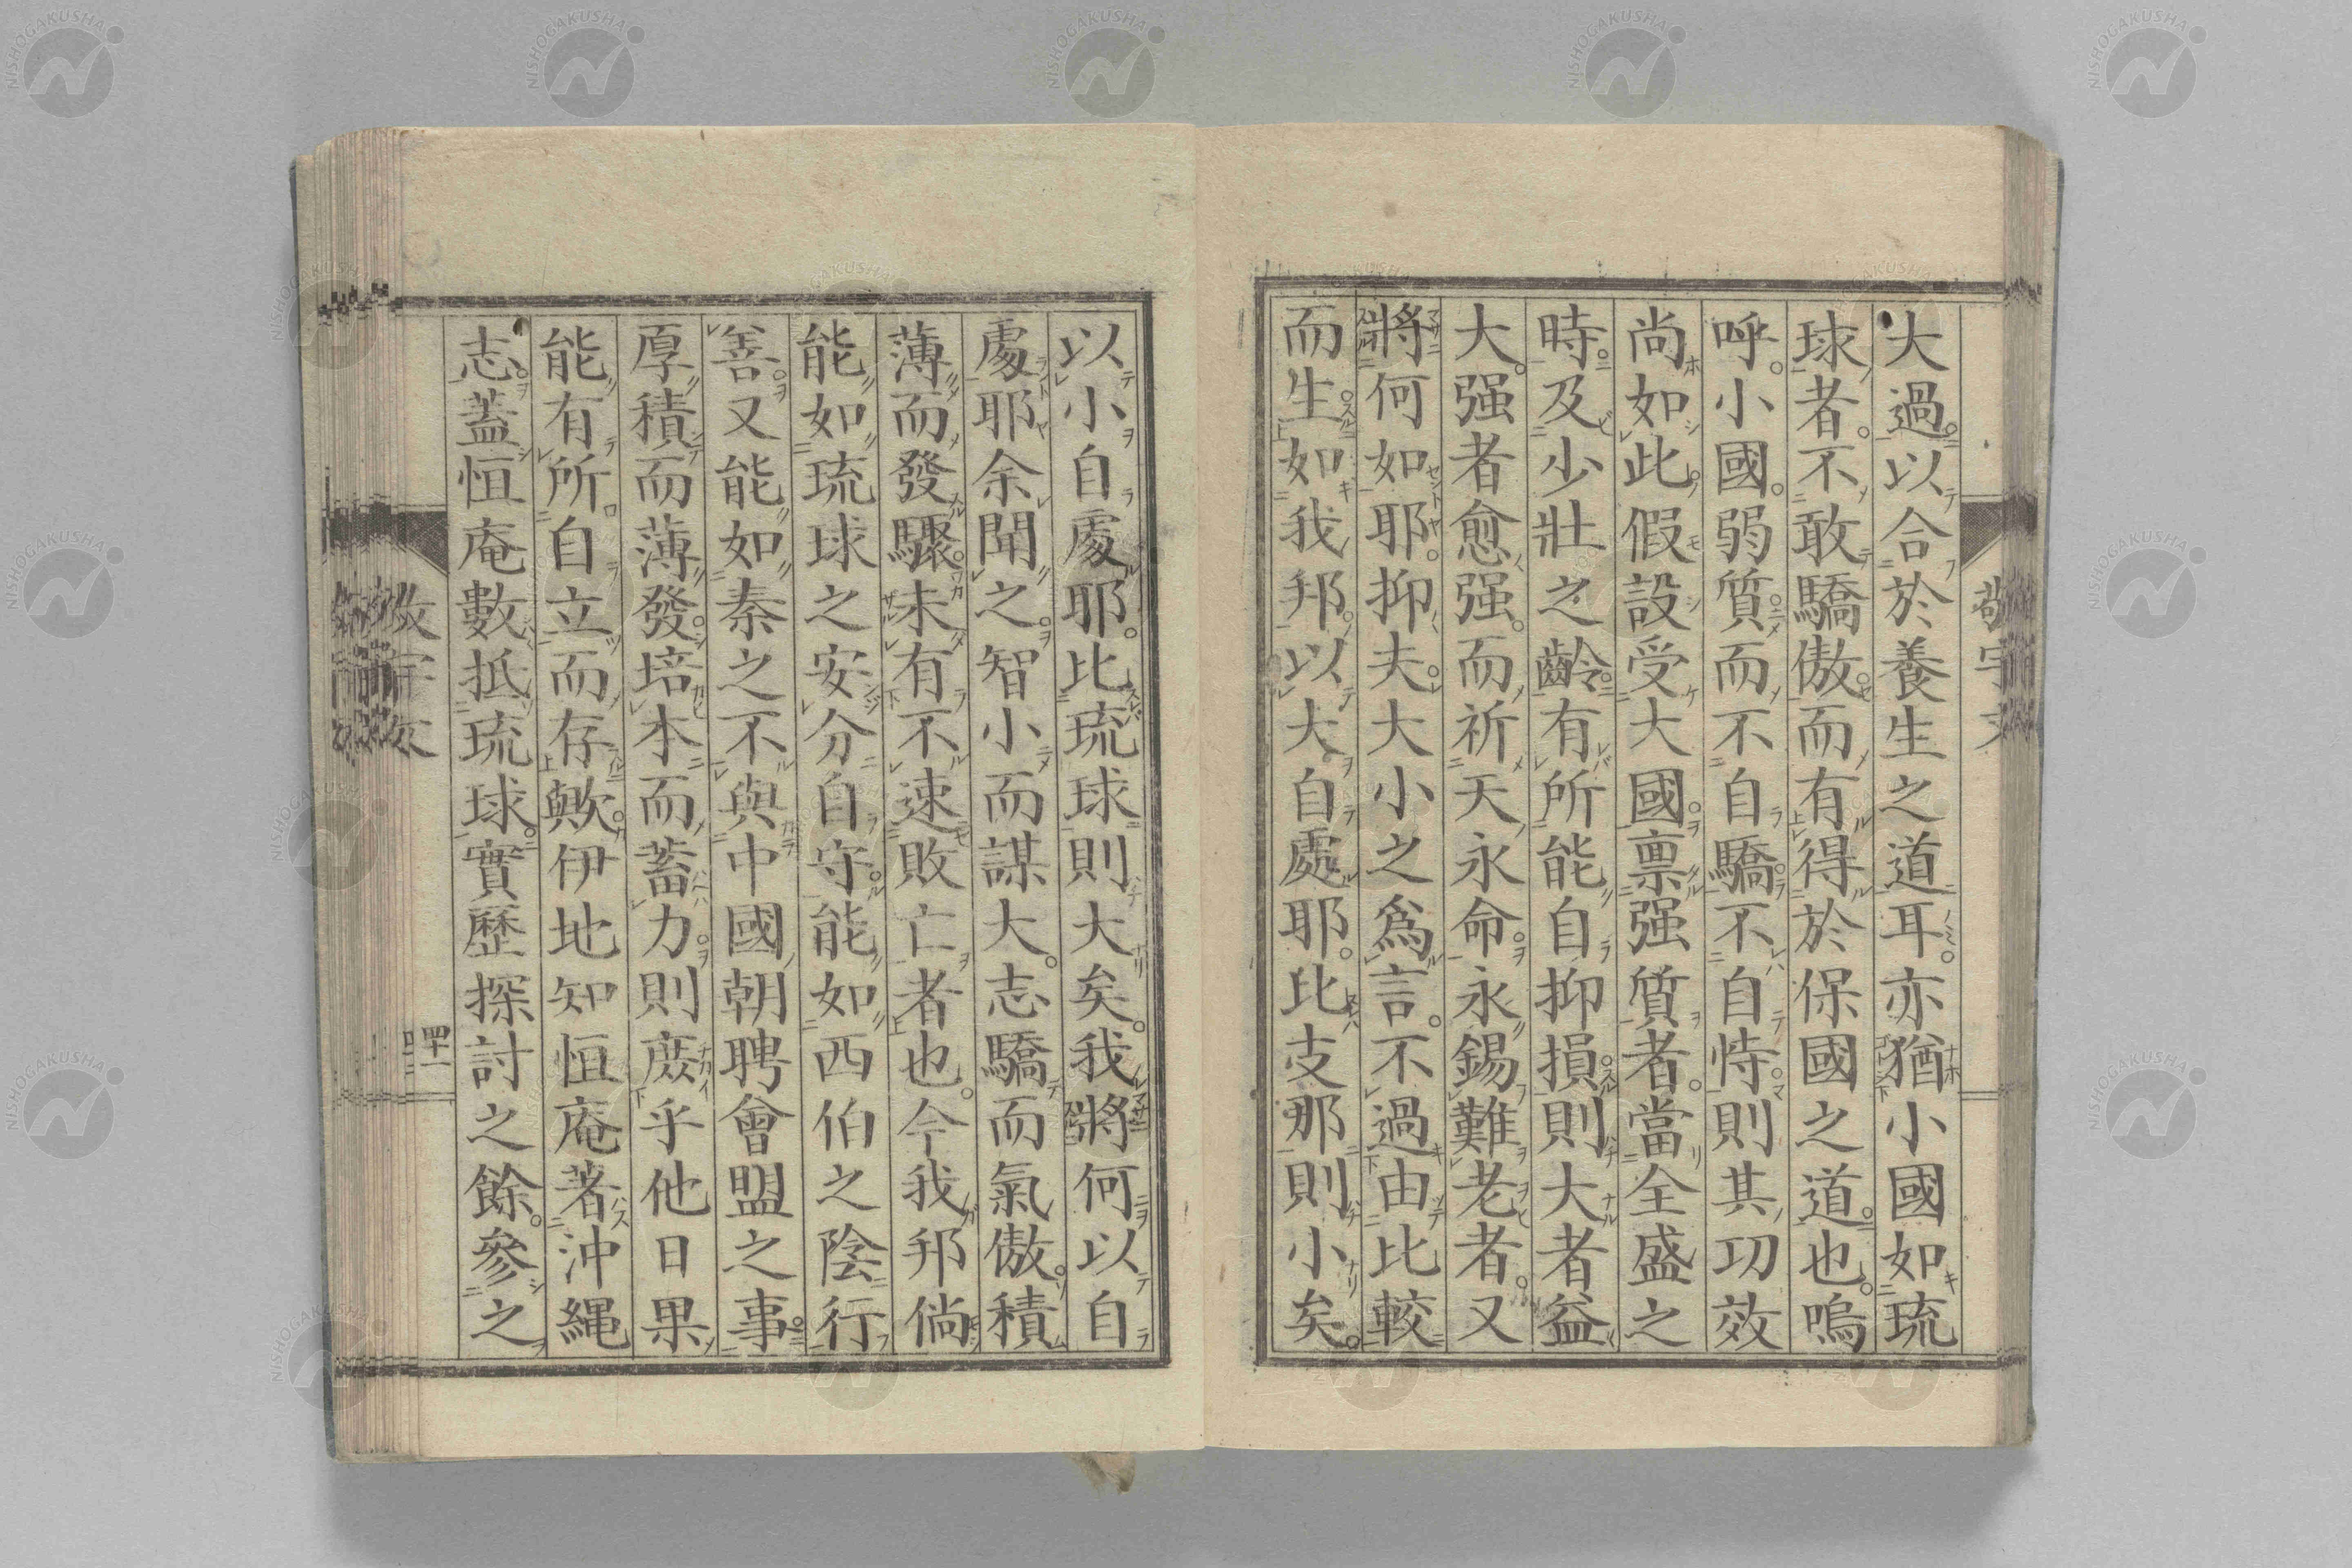 大過以合於養生之道耳。亦猶小國如琉
球者。不敢驕傲而有得於保國之道也。嗚
呼。小國。弱質而不自驕不自恃則其功效
尚如此假設受大國禀强質者。當全盛之
時及少壯之齡有所能自抑損則大者益
大。强者愈强。而祈天永命永錫難老者。又
將何如耶。抑夫大小之爲言。不過由比較
而生如我邦以大自處耶。比支那則小矣。
以小自處耶。比琉球則大矣。我將何以自
處耶余聞之智小而謀大。志驕而氣傲積
薄而發驟。未有不速敗亡者也。今我邦倘
能如琉球之安分自守能如西伯之陰行
善。又能如秦之不與中國朝聘會盟之事
厚積而薄發。培本而蓄力則庶乎他日果
能有所自立而存歟伊地知恒庵著沖繩
志。蓋恒庵數抵琉球實歷探討之餘。參之
敬宇文
四十一
NISHOGAKUSHA